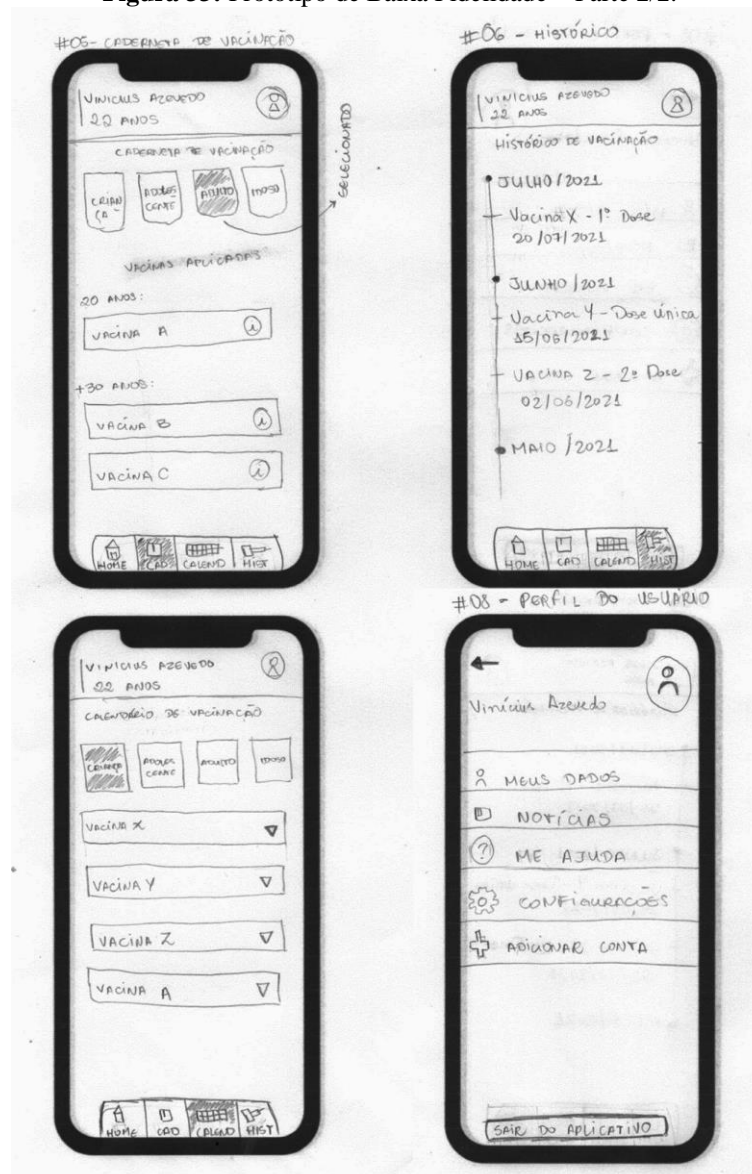 Figura 33: Protótipo de Baixa Fidelidade – Parte 2/2.
#05- CADERNETA DE VACINAÇÃO
VINICIUS AZEVEDO
22 ANOS
CADERNETA DE VACINAÇÃO
CRIAN
ÇA
ADOLES
CENTE
ADULTO
IDOSO
SELECIONADO
VACINAS APLICADAS
20 ANOS:
VACINA A
i
+30 ANOS:
VACINA B
i
VACINA C
i
HOME
CAD
CALEND
HIST
#06 - HISTÓRICO
VINICIUS AZEVEDO
22 ANOS
HISTÓRICO DE VACINAÇÃO
JULHO/2021
Vacina X - 1ª Dose
20/07/2021
JUNHO/2021
Vacina Y - Dose única
15/06/2021
VACINA Z - 2ª Dose
02/06/2021
MAIO/2021
HOME
CAD
CALEND
HIST
VINICIUS AZEVEDO
22 ANOS
CALENDÁRIO DE VACINAÇÃO
CRIANÇA
ADOLES
CENTE
ADULTO
IDOSO
VACINA X
VACINA Y
VACINA Z
VACINA A
HOME
CAD
CALEND
HIST
#08 - PERFIL DO USUÁRIO
Vinícius Azevedo
MEUS DADOS
NOTÍCIAS
? ME AJUDA
CONFIGURAÇÕES
ADICIONAR CONTA
SAIR DO APLICATIVO